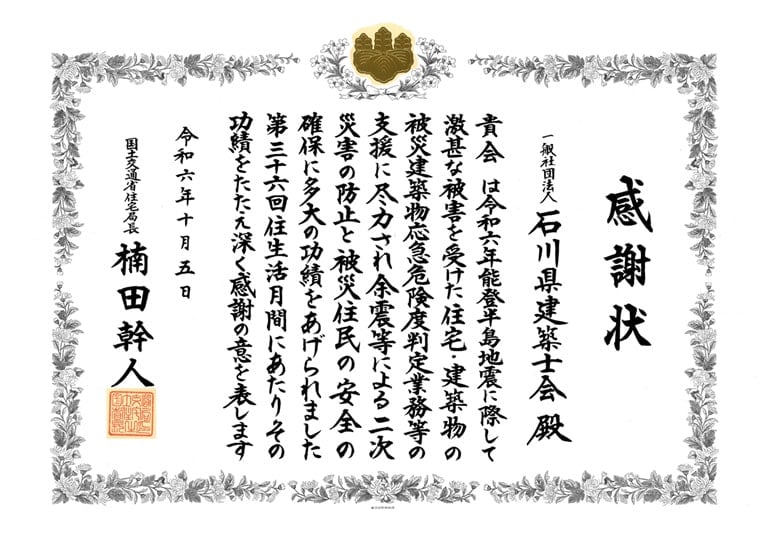 感謝状
一般社団法人 石川県建築士会 殿
貴会 は令和六年能登半島地震に際して
激甚な被害を受けた住宅・建築物の
被災建築物応急危険度判定業務等の
支援に尽力され余震等による二次
災害の防止と被災住民の安全の
確保に多大の功績をあげられました
第三十六回住生活月間にあたりその
功績をたたえ深く感謝の意を表します
令和六年十月五日
国土交通省住宅局長 楠田幹人